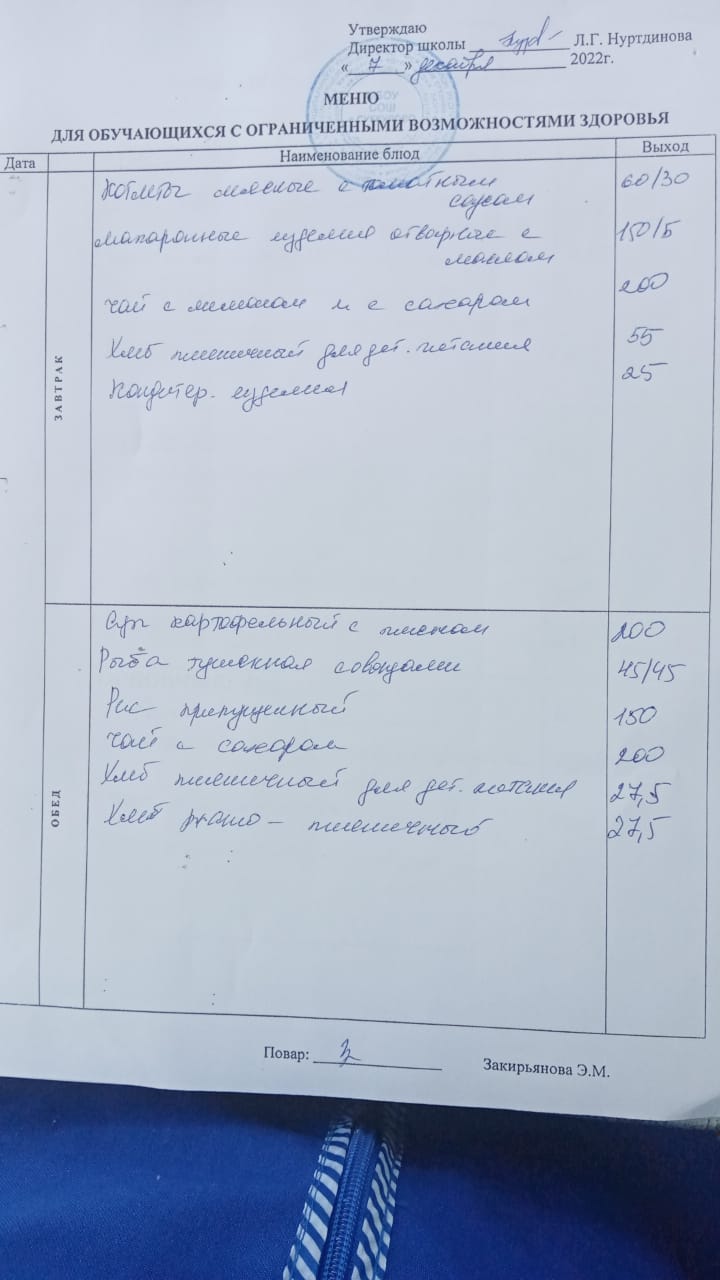 Утверждаю
Директор школы Л.Г. Нуртдинова
«7» декабря 2022г.
МЕНЮ
ДЛЯ ОБУЧАЮЩИХСЯ С ОГРАНИЧЕННЫМИ ВОЗМОЖНОСТЯМИ ЗДОРОВЬЯ
Дата Наименование блюд Выход
ЗАВТРАК
Котлеты мясные с томатным 60/30
соусом
макаронные изделия отварные с 150/5
маслом
чай с лимоном и с сахаром 200
Хлеб пшеничный для дет. питания 55
Кондитер. изделия 25
ОБЕД
Суп картофельный с мясом 200
Рыба тушенная с овощами 45/45
Рис припущенный 150
Чай с сахаром 200
Хлеб пшеничный для дет. питания 27,5
Хлеб ржано - пшеничный 27,5
Повар: Закирьянова Э.М.